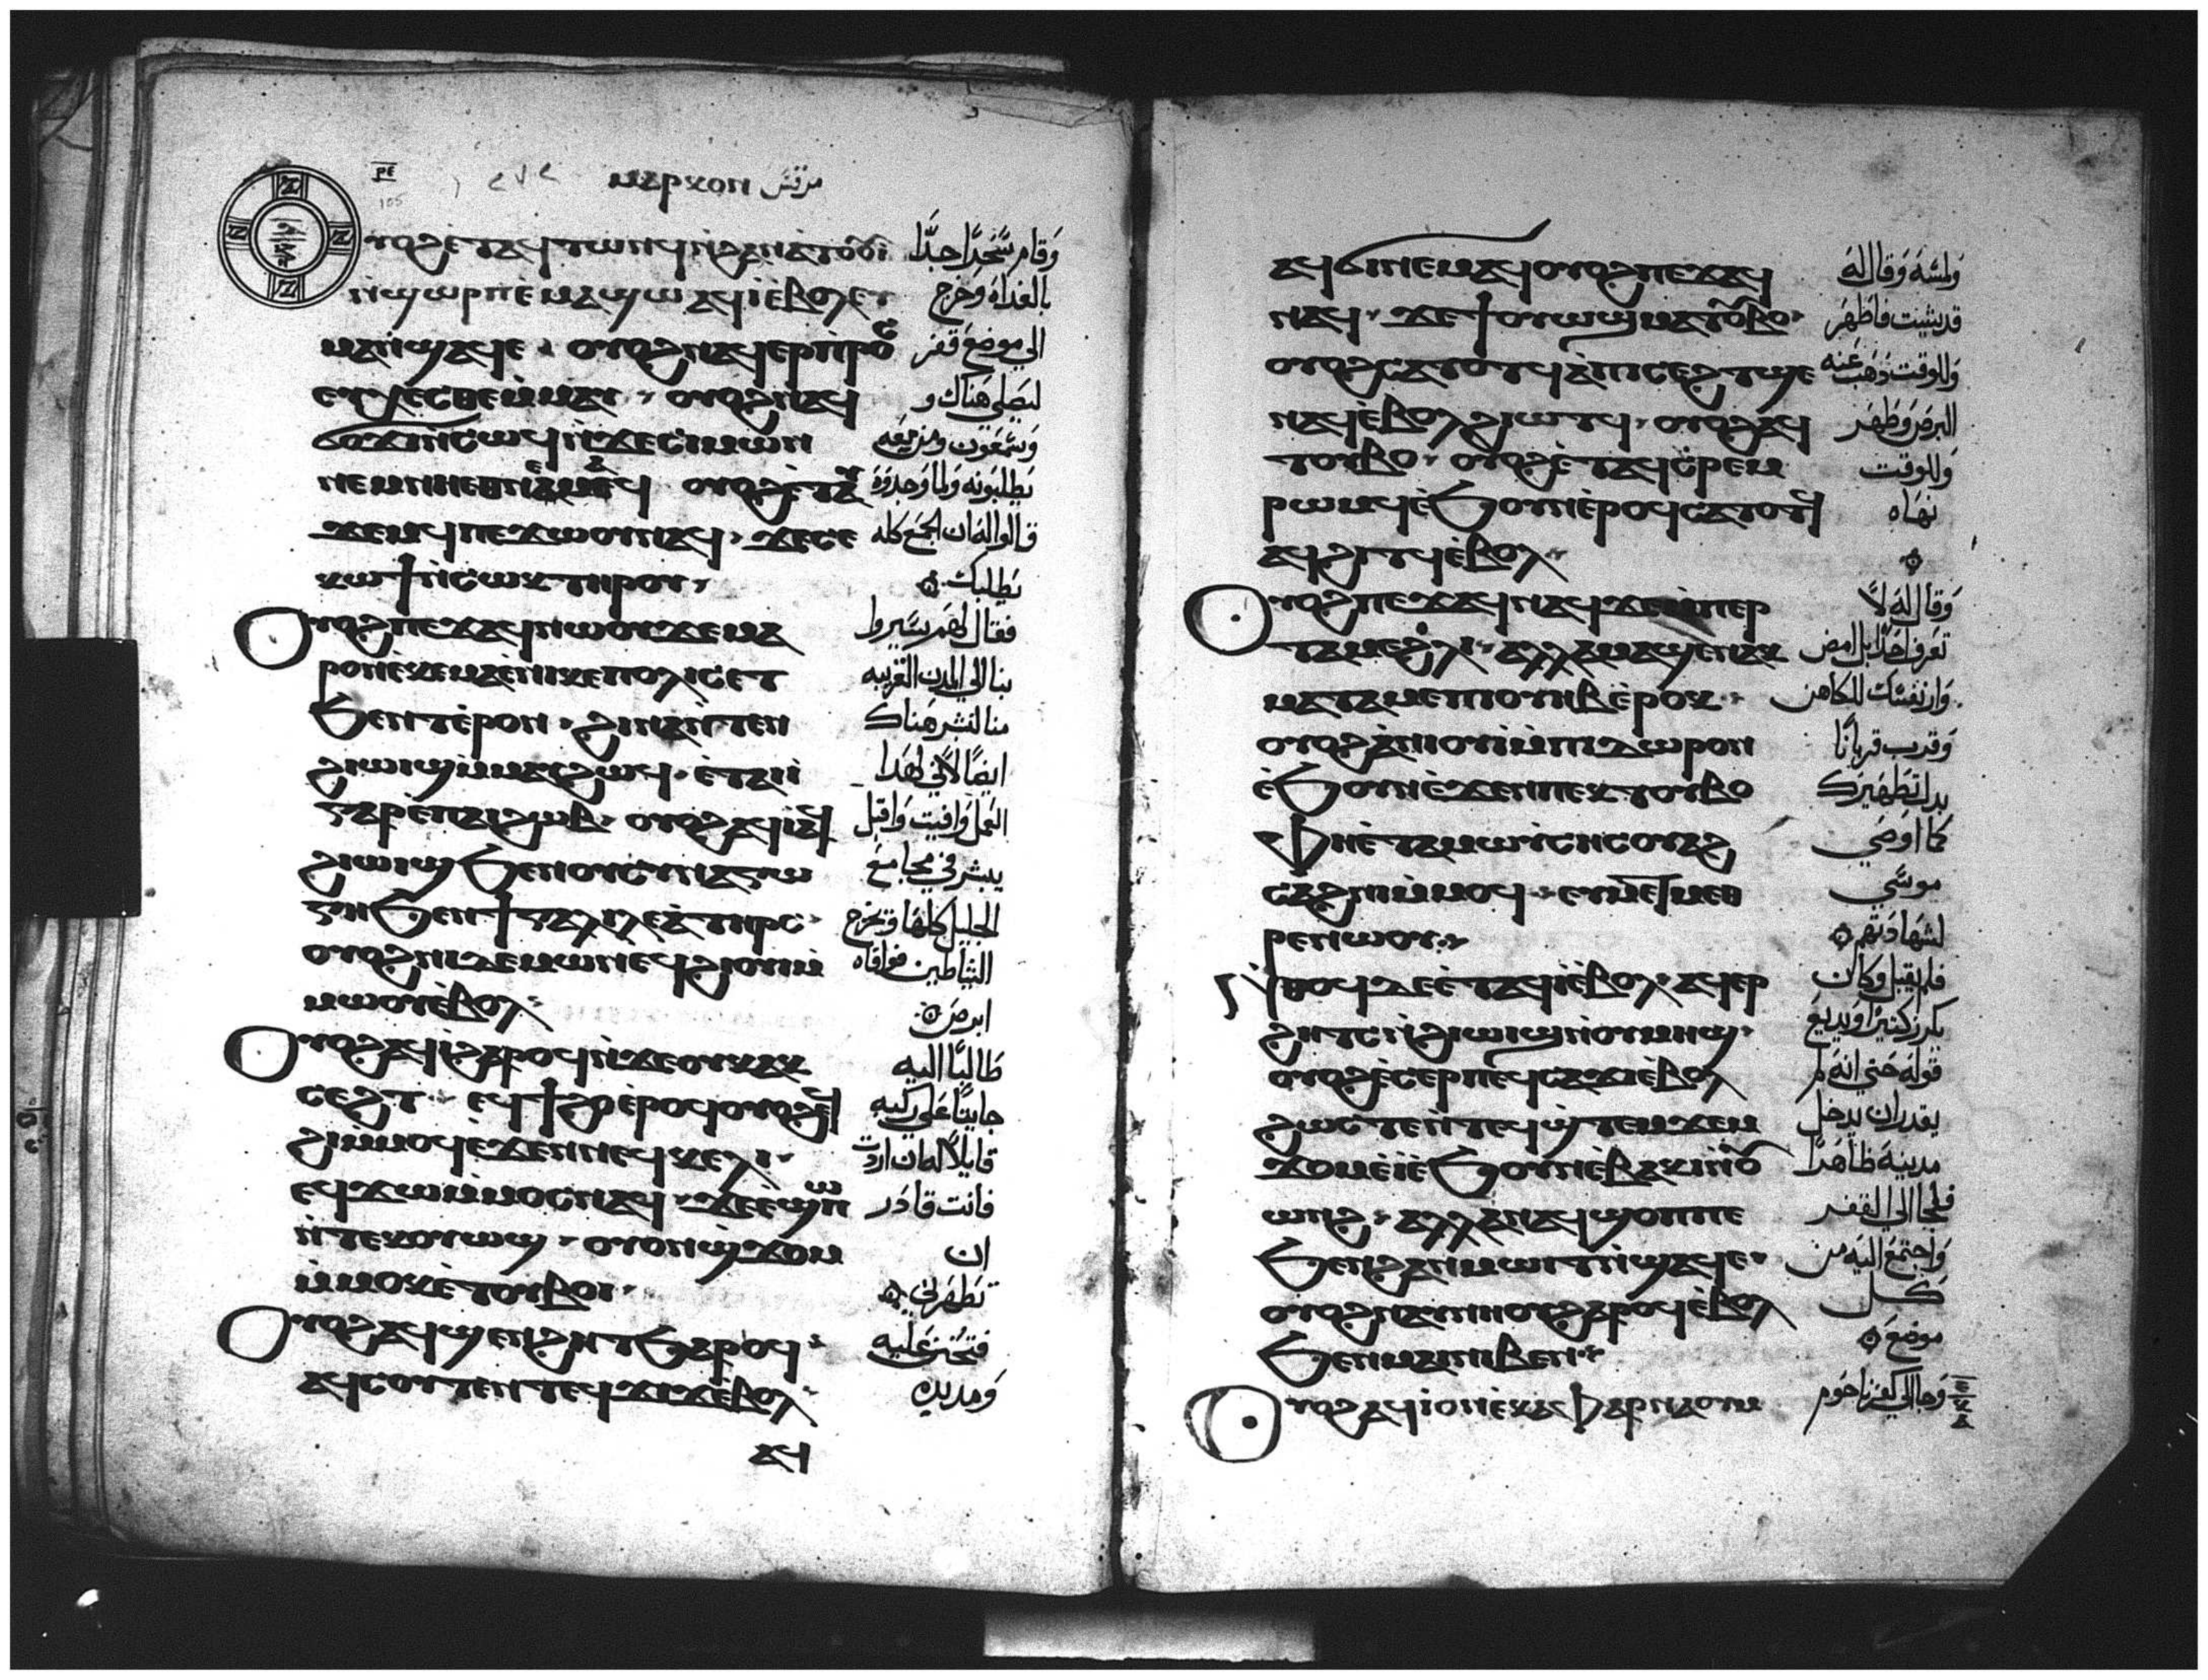 ⲣⲉ ⲙⲁⲣⲕⲟⲛ مرقس
105
ⲟⲩⲟϩ ⲉⲧⲁϥⲧⲱⲛϥ ⲛϩⲁⲛⲁⲧⲟⲟⲩⲓ وقام سحرا جدا
ⲛϣⲱⲣⲡ ⲉⲙⲁϣⲱ ⲁϥⲓ ⲉⲃⲟⲗ ⲉⲩ بالغداه وخرج
ⲙⲁ ⲛϣⲁϥⲉ ⲟⲩⲟϩ ⲛⲁϥⲉⲣⲡⲣⲟⲥ الي موضع قفر
ⲉⲩⲭⲉⲥⲑⲉ ⲙⲙⲁⲩ ⲟⲩⲟϩ ⲛⲁϥ ليصلي هناك و
ϭⲟϫⲓ ⲛⲥⲱϥ ⲛϫⲉ ⲥⲓⲙⲱⲛ وسمعون ومن معه
ⲛⲉⲙ ⲛⲏ ⲉⲑⲛⲉⲙⲁϥ ⲟⲩⲟϩ ⲉⲧⲁⲩ يطلبونه ولما وجدوه
ϫⲉⲙϥ ⲡⲉϫⲱⲟⲩ ⲛⲁϥ ϫⲉ ⲥⲉ قالوا له ان الجمع كله
ⲕⲱϯ ⲛⲥⲱⲕ ⲧⲏⲣⲟⲩ يطلبك
ⲟⲩⲟϩ ⲡⲉϫⲁϥ ⲛⲱⲟⲩ ϫⲉ ⲙⲁ فقال لهم سيروا
ⲣⲟⲛ ⲉⲕⲉⲙⲁ ⲉⲛⲓⲕⲉⲡⲟⲗⲓⲥ ⲉⲧ بنا الي المدن القريبه
ϧⲉⲛⲧ ⲉⲣⲟⲛ ϩⲓⲛⲁ ⲛⲧⲉⲛ منا لنبشر هناك
ϩⲓⲱⲓϣ ⲙⲙⲁⲩ ϩⲱϥ ⲉⲧⲁⲓⲓ ايضا لاني لهدا
ⲅⲁⲣ ⲉⲡⲁⲓϩⲱⲃ ⲟⲩⲟϩ ⲁϥⲓ ⲁϥ العمل وافيت واقبل
ϩⲓⲱⲓϣ ϧⲉⲛ ⲟⲩⲥⲩⲛⲁⲅⲱ يبشر في مجامع
ⲅⲏ ϧⲉⲛ ϯⲅⲁⲗⲓⲗⲉⲁ ⲧⲏⲣⲥ الجليل كلها ويخرج
ⲟⲩⲟϩ ⲛⲓⲇⲉⲙⲱⲛ ⲉϥϩⲓⲟⲩⲓ ⲙ الشياطين فوافاه
ⲙⲱⲟⲩ ⲉⲃⲟⲗ ابرص
ⲟⲩⲟϩ ⲁϥⲓ ϩⲁⲣⲟϥ ⲛϫⲉ ⲟⲩⲕⲁⲕ طالبا اليه
ⲥⲉϩⲧ ⲉϥϯϩⲟ ⲉⲣⲟϥ ⲟⲩⲟϩ ⲉϥ جاثيا علي ركبتيه
ϩⲓ ⲙⲙⲟϥ ⲉϫⲉⲛ ⲛⲉϥⲕⲉⲗⲓ قايلا له ان اردت
ⲉϥϫⲱ ⲙⲙⲟⲥ ⲛⲁϥ ϫⲉ ⲉϣⲱⲡ فانت قادر
ⲛⲧⲉⲕⲟⲩⲱϣ ⲟⲩⲟⲛ ϣϫⲟⲙ ان
ⲙⲙⲟⲕ ⲉⲧⲟⲩⲃⲟⲓ تطهرني
ⲟⲩⲟϩ ⲁϥϣⲉⲛϩⲏⲧ ϧⲁⲣⲟϥ فتحنن عليه
ⲁϥⲥⲟⲩⲧⲉⲛ ⲧⲉϥϫⲓϫ ⲉⲃⲟⲗ ومد يده
ⲁϥ
ⲁϥϭⲓ ⲛⲉⲙⲁϥ ⲟⲩⲟϩ ⲡⲉϫⲁϥ ولمسه وقال له
ⲛⲁϥ ϫⲉ ϯⲟⲩⲱϣ ⲙⲁⲧⲟⲩⲃⲟ قد شيت فاطهر
ⲟⲩⲟϩ ⲥⲁⲧⲟⲧϥ ⲁ ⲡⲓⲥⲉϩⲧ ϣⲉ وللوقت دهب عنه
ⲛⲁϥ ⲉⲃⲟⲗ ϩⲓⲱⲧϥ ⲟⲩⲟϩ ⲁϥ البرص وطهر
ⲧⲟⲩⲃⲟ ⲟⲩⲟϩ ⲉⲧⲁϥϭⲣⲉⲙ وللوقت
ⲣⲱⲙϥ ⲉϧⲟⲩⲛ ⲉⲣⲟϥ ⲥⲁⲧⲟⲧϥ نهاه
ⲁϥϩⲓⲧϥ ⲉⲃⲟⲗ
ⲟⲩⲟϩ ⲡⲉϫⲁϥ ⲛⲁϥ ϫⲉ ⲙⲡⲉⲣ وقال له لا
ⲧⲁⲙⲉ ϩⲗⲓ ⲁⲗⲗⲁ ⲙⲁϣⲉⲛⲁⲕ تعرف احدا بل امض
ⲙⲁⲧⲁⲙⲉ ⲡⲟⲩⲏⲃ ⲉⲣⲟⲕ وار نفسك للكاهن
ⲟⲩⲟϩ ⲁⲛⲓⲟⲩⲓ ⲙⲡⲓⲇⲱⲣⲟⲛ وقرب قربانا
ⲉϧⲟⲩⲛ ⲉϫⲉⲛ ⲡⲉⲕⲧⲟⲩⲃⲟ بدل تطهيرك
ⲫⲏ ⲉⲧⲁ ⲙⲱⲩⲥⲏⲥ ⲟⲩⲁϩ كما اوصي
ⲥⲁϩⲛⲓ ⲙⲙⲟϥ ⲉⲩⲙⲉⲧⲙⲉⲑ موسي
ⲣⲉ ⲛⲱⲟⲩ لشهادتهم
ⲛⲑⲟϥ ⲇⲉ ⲉⲧⲁϥⲓ ⲉⲃⲟⲗ ⲁϥⲉⲣ فلم يقبل وكان
ϩⲏⲧⲥ ⲛϩⲓⲱⲓϣ ⲛⲟⲩⲙⲏϣ يكرز كثيرا ويديع
ⲟⲩⲟϩ ⲉⲥⲉⲣ ⲡⲉϥⲥⲁϫⲓ ⲉⲃⲟⲗ قوله حتي انه لم
ϩⲱⲥⲧⲉ ⲛⲧⲉϥϣⲧⲉⲙϫⲉⲙ يقدر ان يدخل
ϫⲟⲙ ⲉⲓ ⲉϧⲟⲩⲛ ⲉⲃⲁⲕⲓ ⲛⲟⲩ مدينه ظاهرا
ⲱⲛϩ ⲁⲗⲗⲁ ⲛⲁϥϣⲟⲡ ⲡⲉ فلجا الي القفر
ϧⲉⲛ ϩⲁⲛⲙⲱⲓⲧ ⲛϣⲁϥⲉ واجتمع اليه من
ⲟⲩⲟϩ ⲛⲁⲩⲛⲏⲟⲩ ϩⲁⲣⲟϥ ⲉⲃⲟⲗ كل
ϧⲉⲛ ⲙⲁⲓ ⲛⲓⲃⲉⲛ موضع
ⲟⲩⲟϩ ⲁϥⲓ ⲟⲛ ⲉⲕⲁⲫⲁⲣⲛⲁⲟⲩⲙ وجا الي كفرناحوم